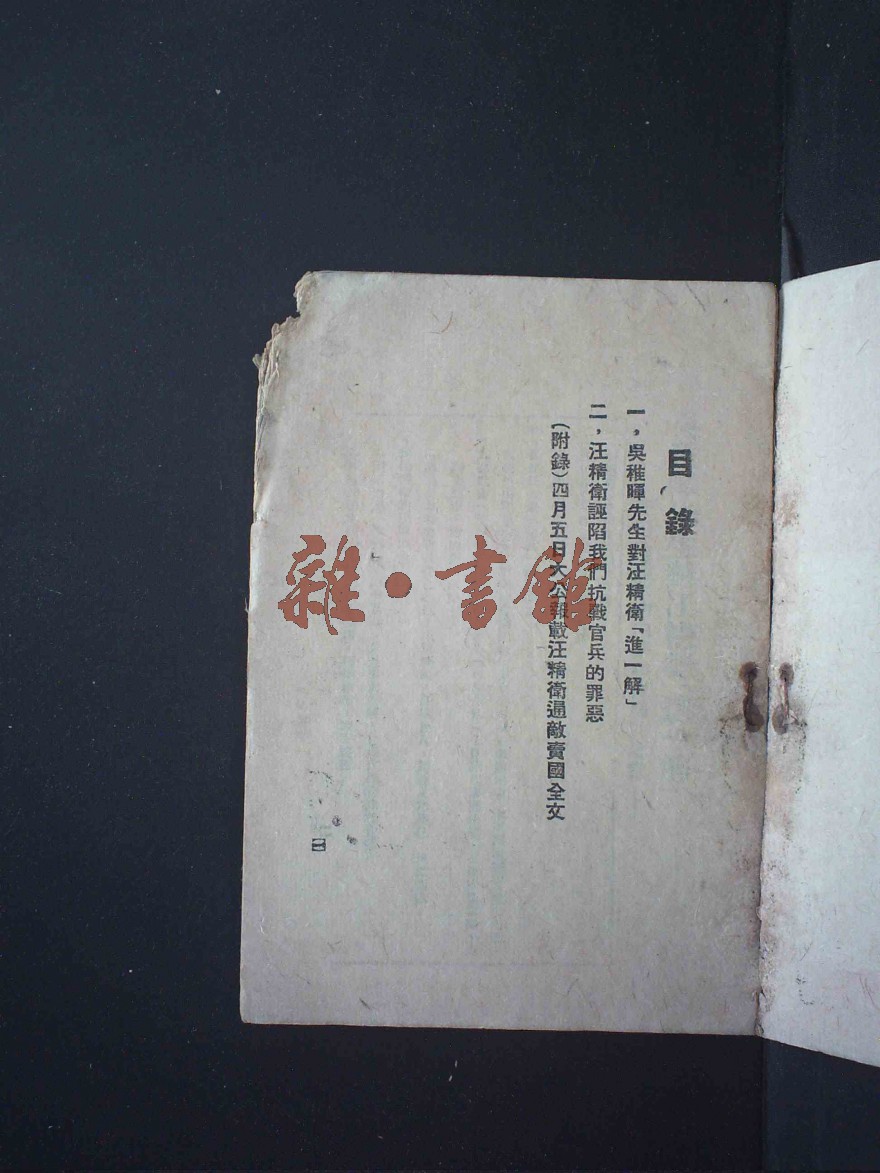 目錄
一，吳稚暉先生對汪精衛「進一解」
二，汪精衛誣陷我們抗戰官兵的罪惡
（附錄）四月五日大公報載汪精衛通敵賣國全文
雜·書館